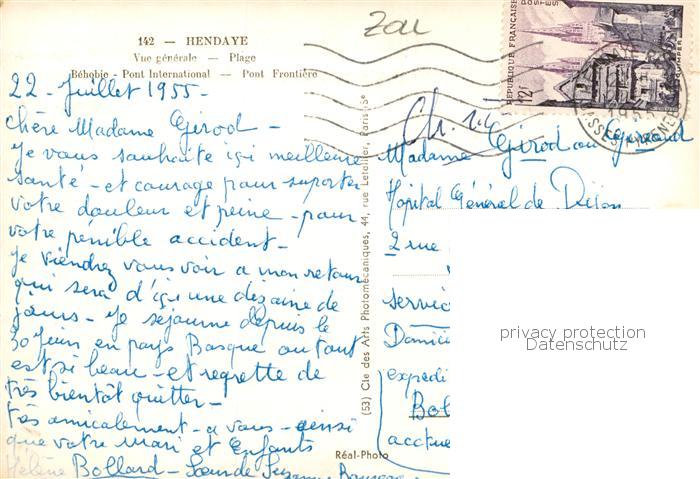 142 — HENDAYE
Vue générale — Plage
Béhobie - Pont International — Pont Frontière
22 - Juillet 1955 -
chère Madame Girod -
Je vous souhaite ici meilleure
santé - et courage pour suporter
votre douleur et peine - pour
votre pénible accident -
Je viendrez vous voir a mon retour
qui sera d'ici une dizaine de
jours - Je séjourne depuis le
30 Juin en pays Basque ou tout
est si beau - et regrette de
très bientôt quitter -
très amicalement - a vous - ainsi
que votre Mari et Enfants
Hélène Bollard - Soeur de
(53) Cie des Arts Photomécaniques, 44, rue Letellier, Paris, 15e
Réal-Photo
Zou
REPUBLIQUE FRANÇAISE
POSTES
12f
QUIMPER
BASSES PYRENEES
Ch.
Madame Girod ou Girard
Hôpital Général de Dijon
2 rue
servic
Domici
expedi
Bol
accue
privacy protection
Datenschutz